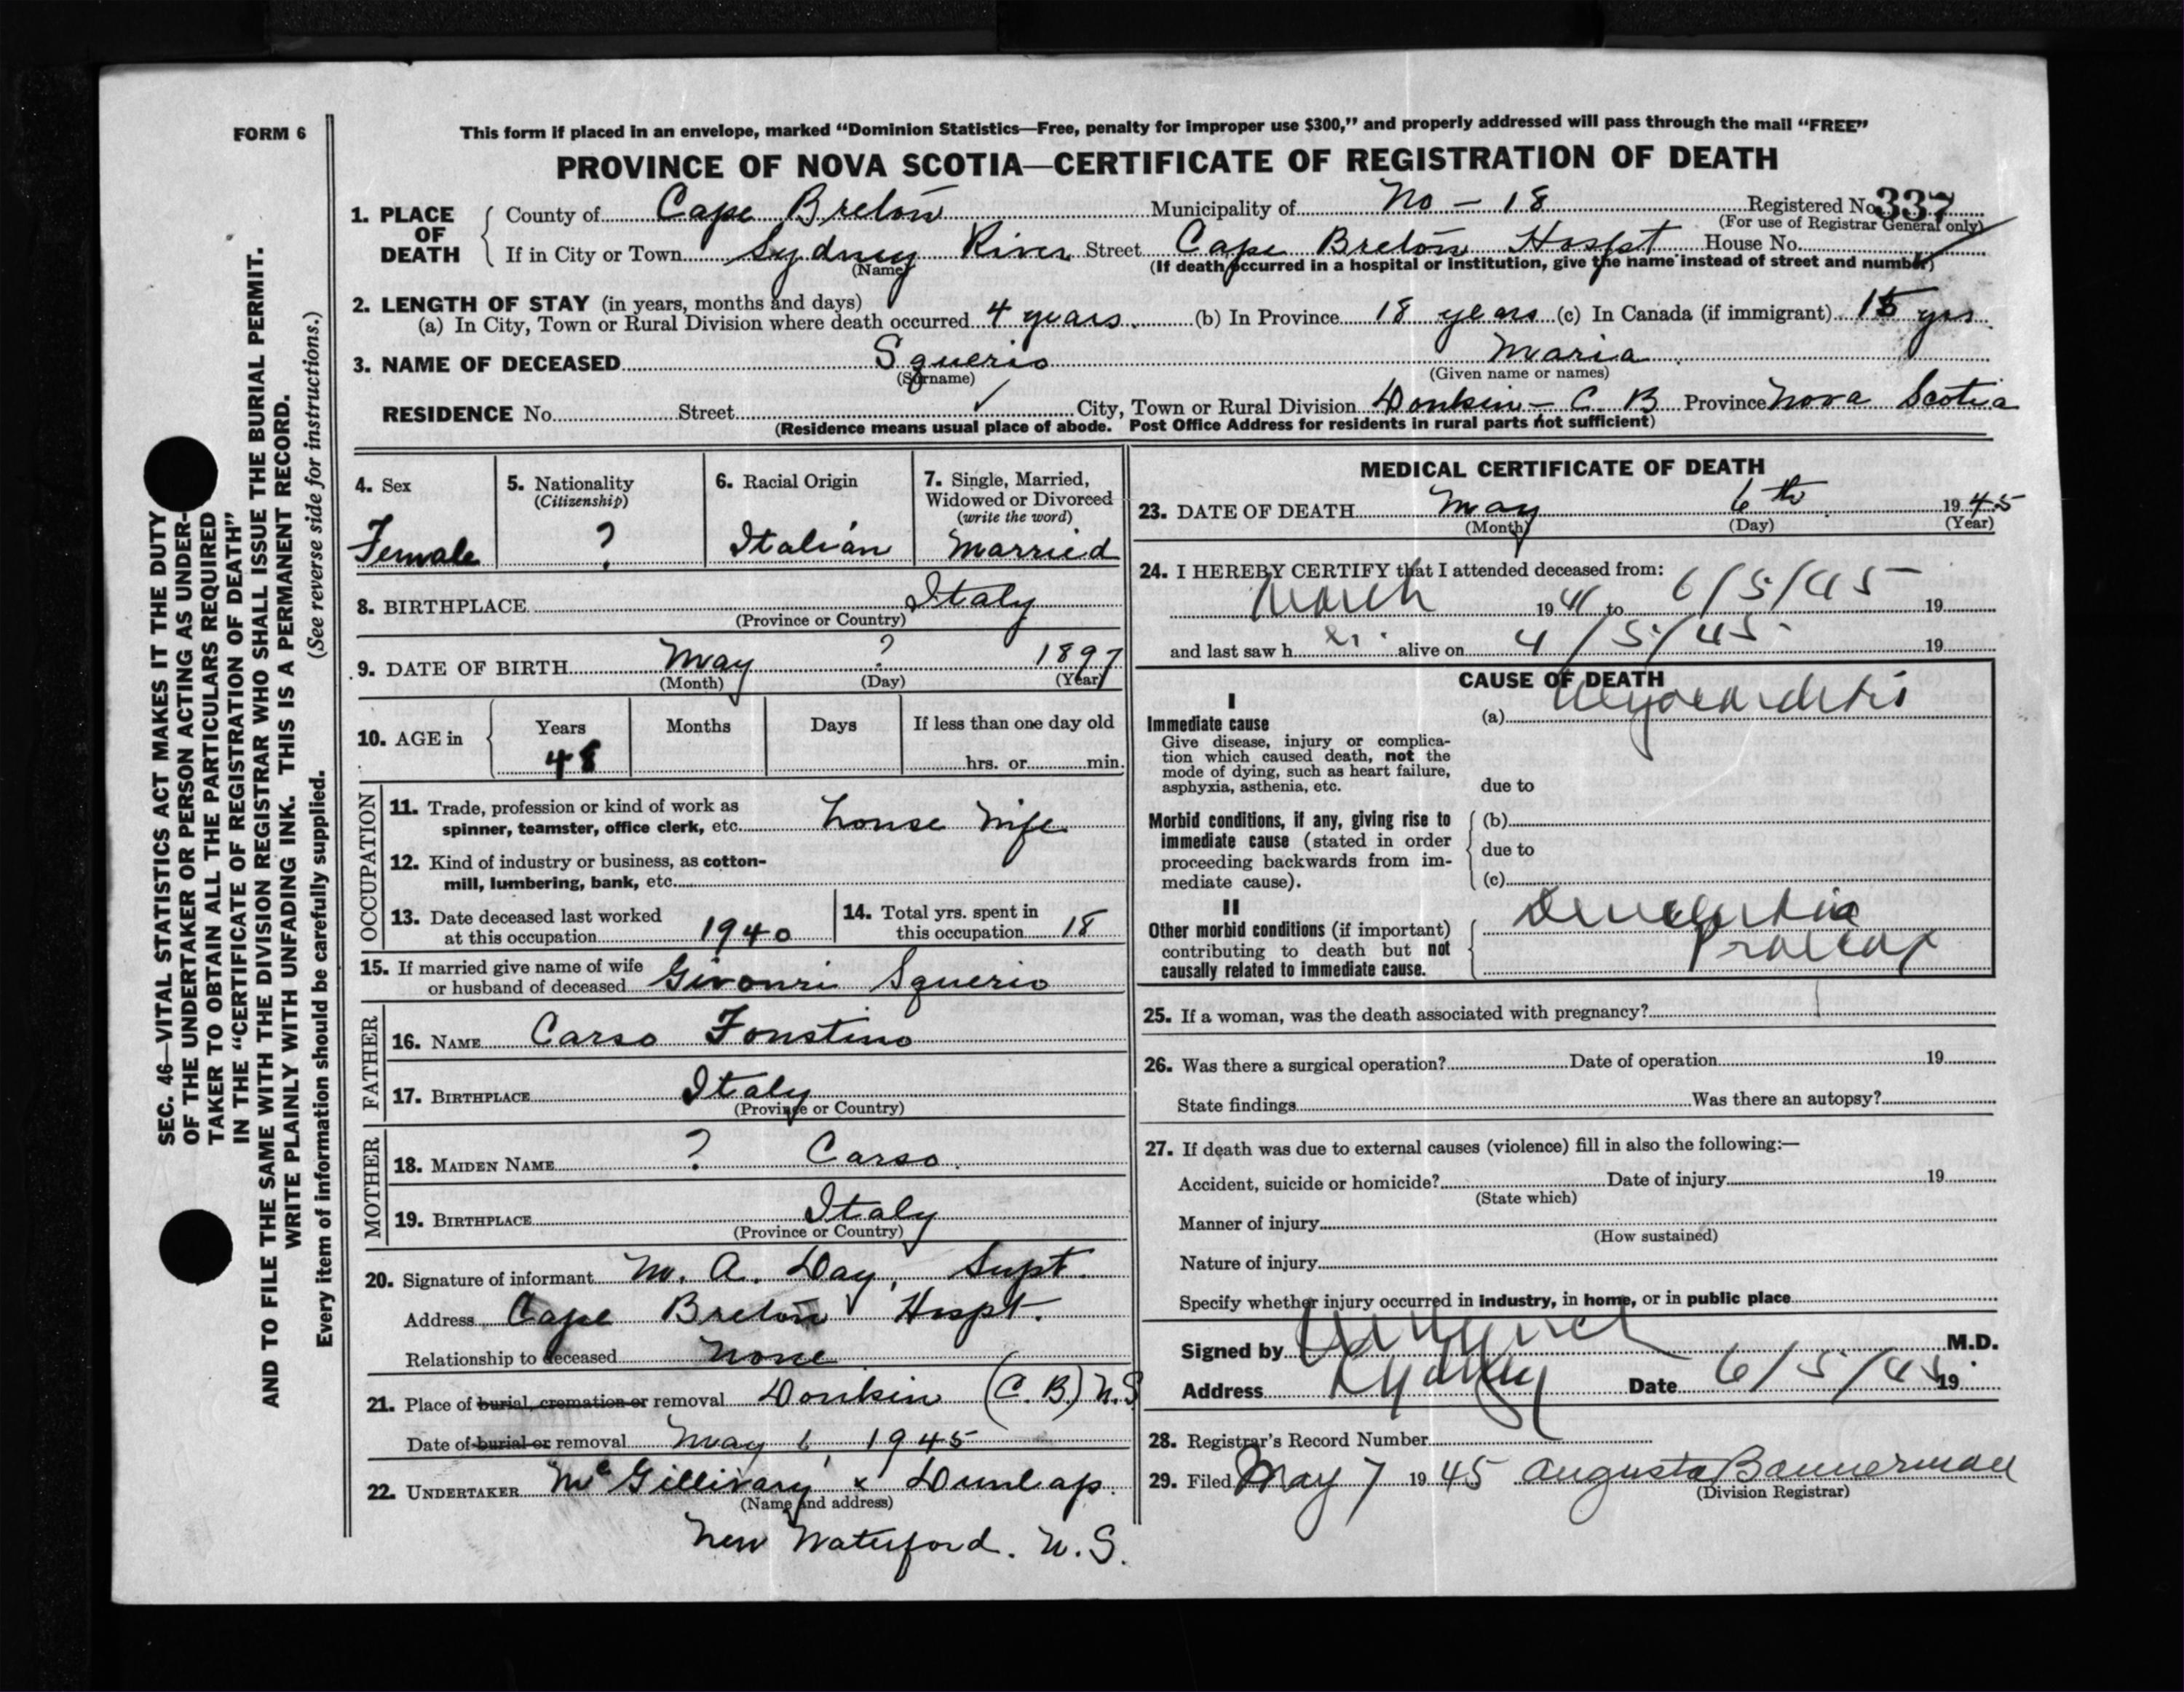 FORM 6
This form if placed in an envelope, marked “Dominion Statistics—Free, penalty for improper use $300,” and properly addressed will pass through the mail “FREE”
PROVINCE OF NOVA SCOTIA—CERTIFICATE OF REGISTRATION OF DEATH
1. PLACE OF DEATH
County of Cape Breton Municipality of No - 18 Registered No. 337
(For use of Registrar General only)
If in City or Town Sydney River Street Cape Breton Hospt House No.
(Name) (If death occurred in a hospital or institution, give the name instead of street and number)
2. LENGTH OF STAY (in years, months and days)
(a) In City, Town or Rural Division where death occurred 4 years (b) In Province 18 years (c) In Canada (if immigrant) 15 yrs
3. NAME OF DECEASED Squerio Maria
(Surname) (Given name or names)
RESIDENCE No. Street ✓ City, Town or Rural Division Donkin - C. B Province Nova Scotia
(Residence means usual place of abode. Post Office Address for residents in rural parts not sufficient)
SEC. 46—VITAL STATISTICS ACT MAKES IT THE DUTY
OF THE UNDERTAKER OR PERSON ACTING AS UNDER-
TAKER TO OBTAIN ALL THE PARTICULARS REQUIRED
IN THE “CERTIFICATE OF REGISTRATION OF DEATH”
AND TO FILE THE SAME WITH THE DIVISION REGISTRAR WHO SHALL ISSUE THE BURIAL PERMIT.
WRITE PLAINLY WITH UNFADING INK. THIS IS A PERMANENT RECORD.
Every item of information should be carefully supplied. (See reverse side for instructions.)
4. Sex
Female
5. Nationality
(Citizenship)
?
6. Racial Origin
Italian
7. Single, Married,
Widowed or Divorced
(write the word)
Married
8. BIRTHPLACE Italy
(Province or Country)
9. DATE OF BIRTH May ? 1897
(Month) (Day) (Year)
10. AGE in
Years Months Days If less than one day old
48 hrs. or min.
OCCUPATION
11. Trade, profession or kind of work as
spinner, teamster, office clerk, etc. House Wife
12. Kind of industry or business, as cotton-
mill, lumbering, bank, etc.
13. Date deceased last worked
at this occupation 1940
14. Total yrs. spent in
this occupation 18
15. If married give name of wife
or husband of deceased Givonri Squerio
FATHER
16. NAME Carso Foustino
17. BIRTHPLACE Italy
(Province or Country)
MOTHER
18. MAIDEN NAME ? Carso
19. BIRTHPLACE Italy
(Province or Country)
20. Signature of informant M. A. Day, Supt.
Address Cape Breton Hospt.
Relationship to deceased None
21. Place of burial, cremation or removal Donkin (C. B.) N.S
Date of burial or removal May 6, 1945
22. UNDERTAKER McGillivary & Dunlap.
(Name and address)
New Waterford. N. S.
MEDICAL CERTIFICATE OF DEATH
23. DATE OF DEATH May 6th 1945
(Month) (Day) (Year)
24. I HEREBY CERTIFY that I attended deceased from:
March 1941 to 6/5/45 19
and last saw h er alive on 4/5/45 19
CAUSE OF DEATH
I
Immediate cause
Give disease, injury or complica-
tion which caused death, not the
mode of dying, such as heart failure,
asphyxia, asthenia, etc.
(a) Myocarditis
due to
Morbid conditions, if any, giving rise to
immediate cause (stated in order
proceeding backwards from im-
mediate cause).
(b)
due to
(c)
II
Other morbid conditions (if important)
contributing to death but not
causally related to immediate cause.
Dementia
Praecox
25. If a woman, was the death associated with pregnancy?
26. Was there a surgical operation? Date of operation 19
State findings Was there an autopsy?
27. If death was due to external causes (violence) fill in also the following:—
Accident, suicide or homicide? Date of injury 19
(State which)
Manner of injury
(How sustained)
Nature of injury
Specify whether injury occurred in industry, in home, or in public place
Signed by M.D.
Address Sydney Date 6/5/45 19
28. Registrar's Record Number
29. Filed May 7 1945 Augusta Bannerman
(Division Registrar)